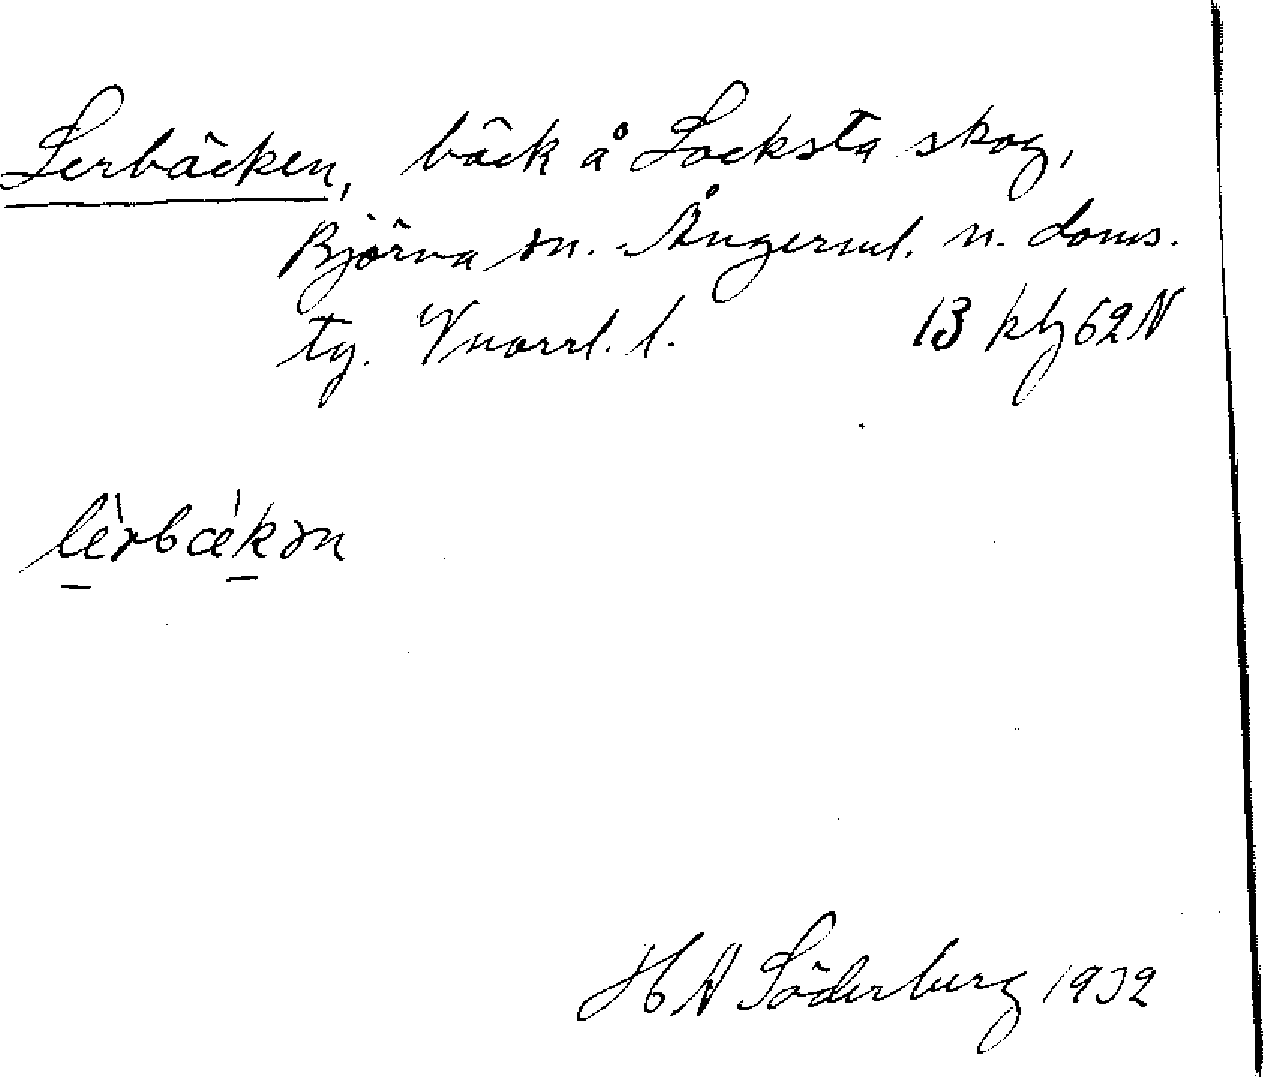 Lerbäcken, bäck å Locksta skog,
Björna sn. Ångerml. n. doms.
tg. Vnorrl. l. 13 kbg 62 N
lèrbækən
H A Söderberg 1932